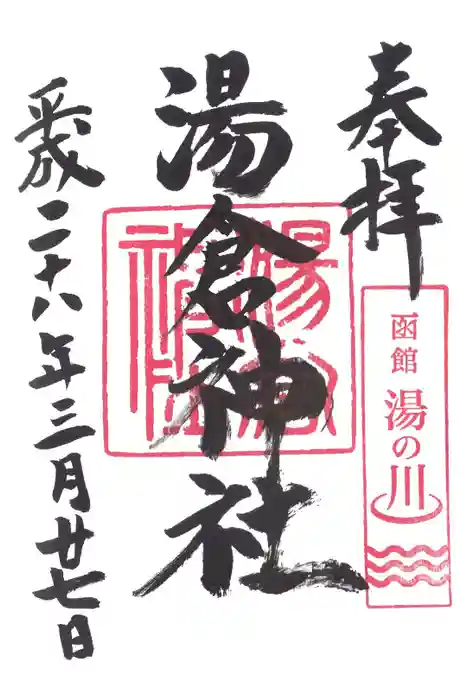 奉拝
函館
湯の川
湯倉神社
湯倉神社
平成二十八年三月廿七日